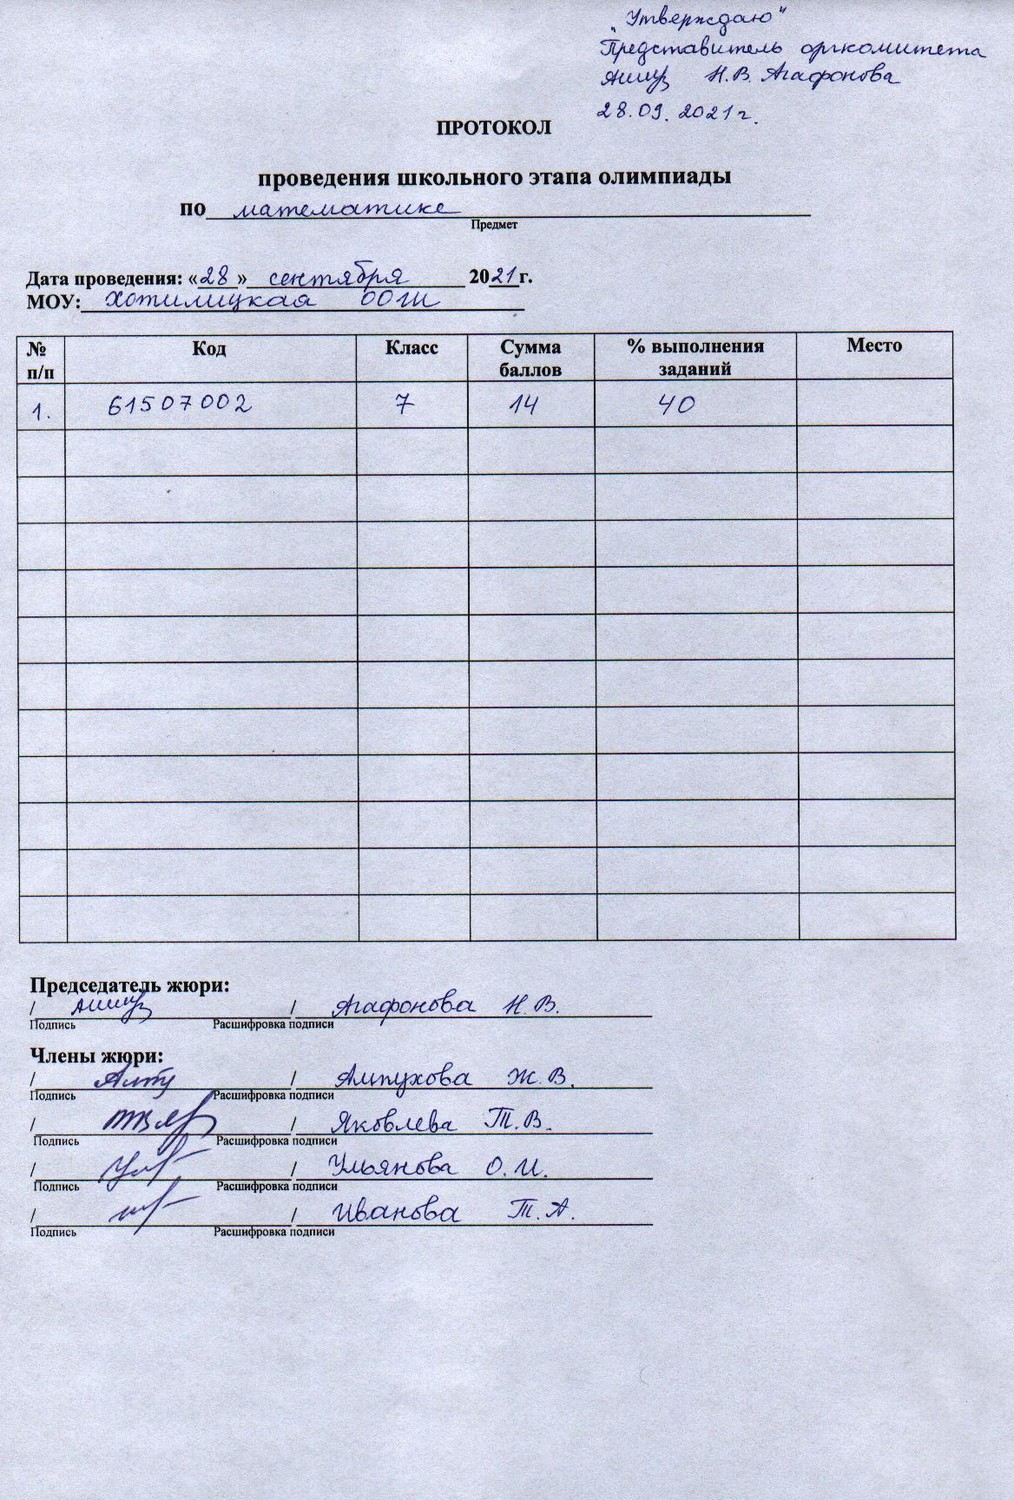 „Утверждаю"
Представитель оргкомитета
Н.В. Агафонова
28.09.2021г.
ПРОТОКОЛ
проведения школьного этапа олимпиады
по математике
Предмет
Дата проведения: «28» сентября 2021г.
МОУ: Хотилицкая ООШ
№ п/п Код Класс Сумма баллов % выполнения заданий Место
1. 61507002 7 14 40
Председатель жюри:
/ / Агафонова Н.В.
Подпись Расшифровка подписи
Члены жюри:
/ / Алтухова Ж.В.
Подпись Расшифровка подписи
/ / Яковлева Т.В.
Подпись Расшифровка подписи
/ / Ульянова О.И.
Подпись Расшифровка подписи
/ / Иванова Т.А.
Подпись Расшифровка подписи